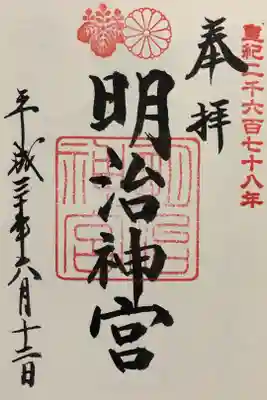 皇紀二千六百七十八年
奉拝
明治神宮
明治
神宮
平成三十年 月十 日